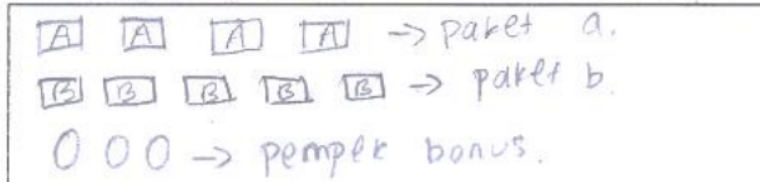 A A A A -> paket a.
B B B B B -> paket b.
0 0 0 -> pempek bonus.